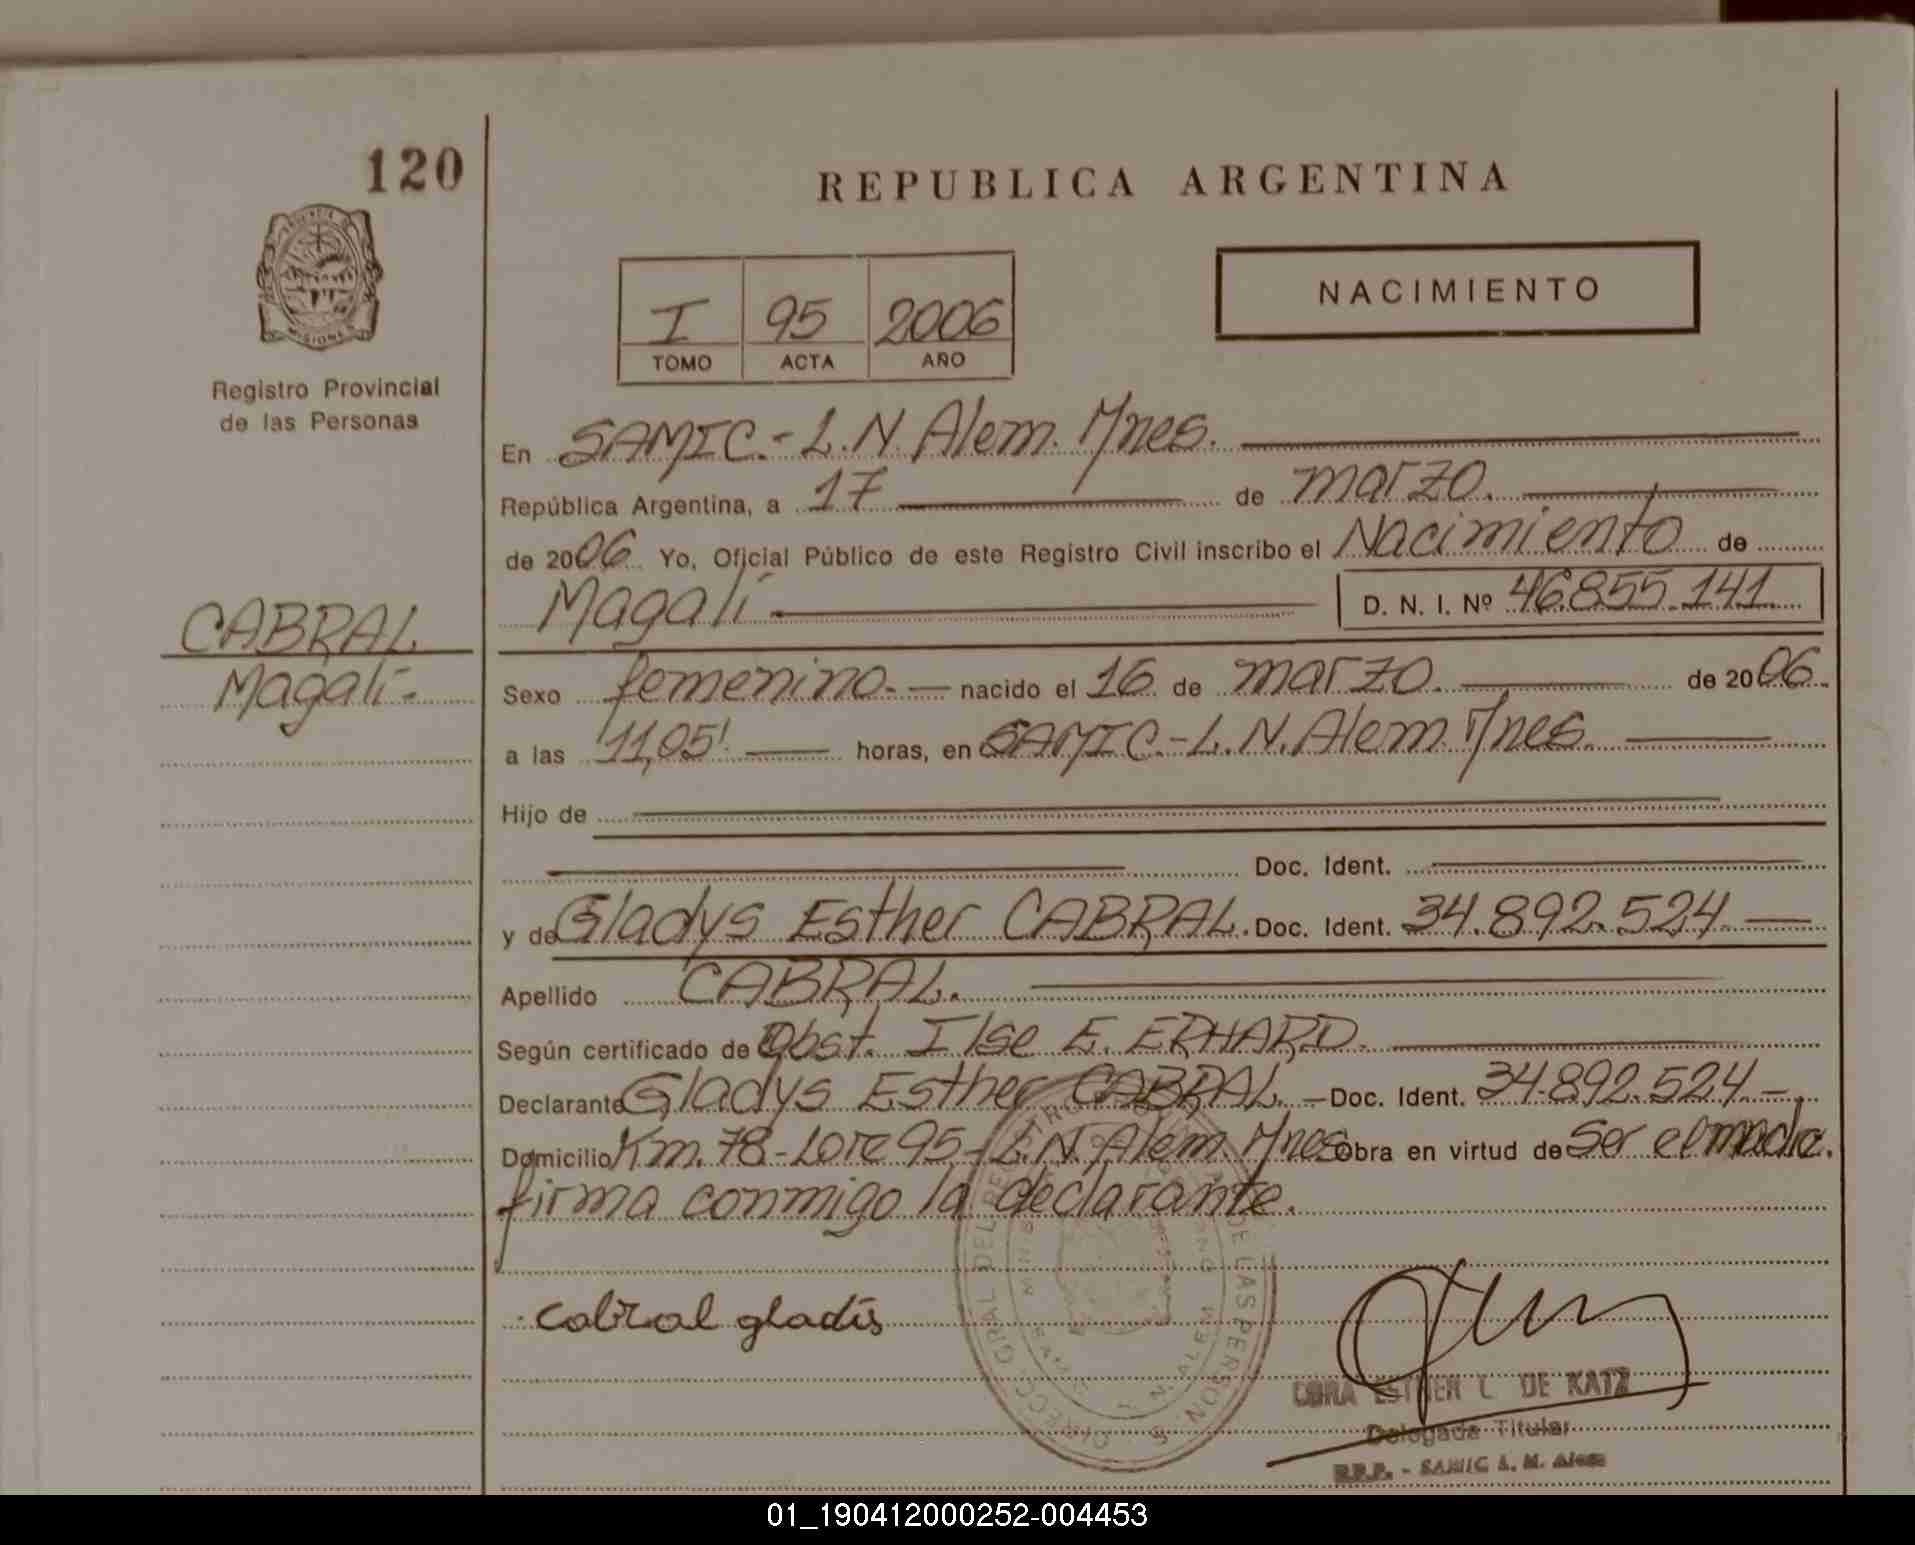 120
REPUBLICA ARGENTINA
MISIONES
Registro Provincial
de las Personas
I 95 2006
TOMO ACTA AÑO
NACIMIENTO
En SAMIC.- L.N. Alem. Mnes.
República Argentina, a 17 de marzo.
de 2006 Yo, Oficial Público de este Registro Civil inscribo el Nacimiento de
Magalí D. N. I. Nº 46.855.141
CABRAL
Magalí-
Sexo femenino.- nacido el 16 de marzo. de 2006.
a las 11,05'. horas, en SAMIC.-L.N. Alem. Mnes.
Hijo de
Doc. Ident.
y de Gladys Esther CABRAL. Doc. Ident. 34.892.524
Apellido CABRAL.
Según certificado de Obst. Ilse E. ERHARD.
Declarante Gladys Esther CABRAL. Doc. Ident. 34.892.524-.
Domicilio Km. 78-Lote 95-L.N. Alem. Mnes. Obra en virtud de ser el madre.
firma conmigo la declarante.
cabral gladis
DIRECC. GRAL DEL REGISTRO DE LAS PERSONAS
SAMIC L. N. ALEM
ESTHER L. DE KATZ
Delegada Titular
R.P.P. - SAMIC L. N. Alem
01_190412000252-004453